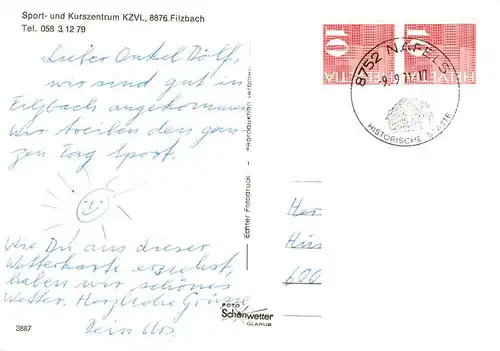 Sport- und Kurszentrum KZVL, 8876 Filzbach
Tel. 058 3 12 79
Lieber Onkel Dölf,
wir sind gut in
Filzbach angekommen
wir treiben den gan-
zen Tag Sport.
Wie Du aus dieser
Wetterkarte ersiehst,
haben wir schönes
Wetter. Herzliche Grüsse
Dein Urs.
3887
Echter Fotodruck - Reproduktion verboten
FOTO
Schönwetter
GLARUS
10 HELVETIA
10 HELVETIA
8752 NÄFELS
HISTORISCHE STÄTTE
Her
600